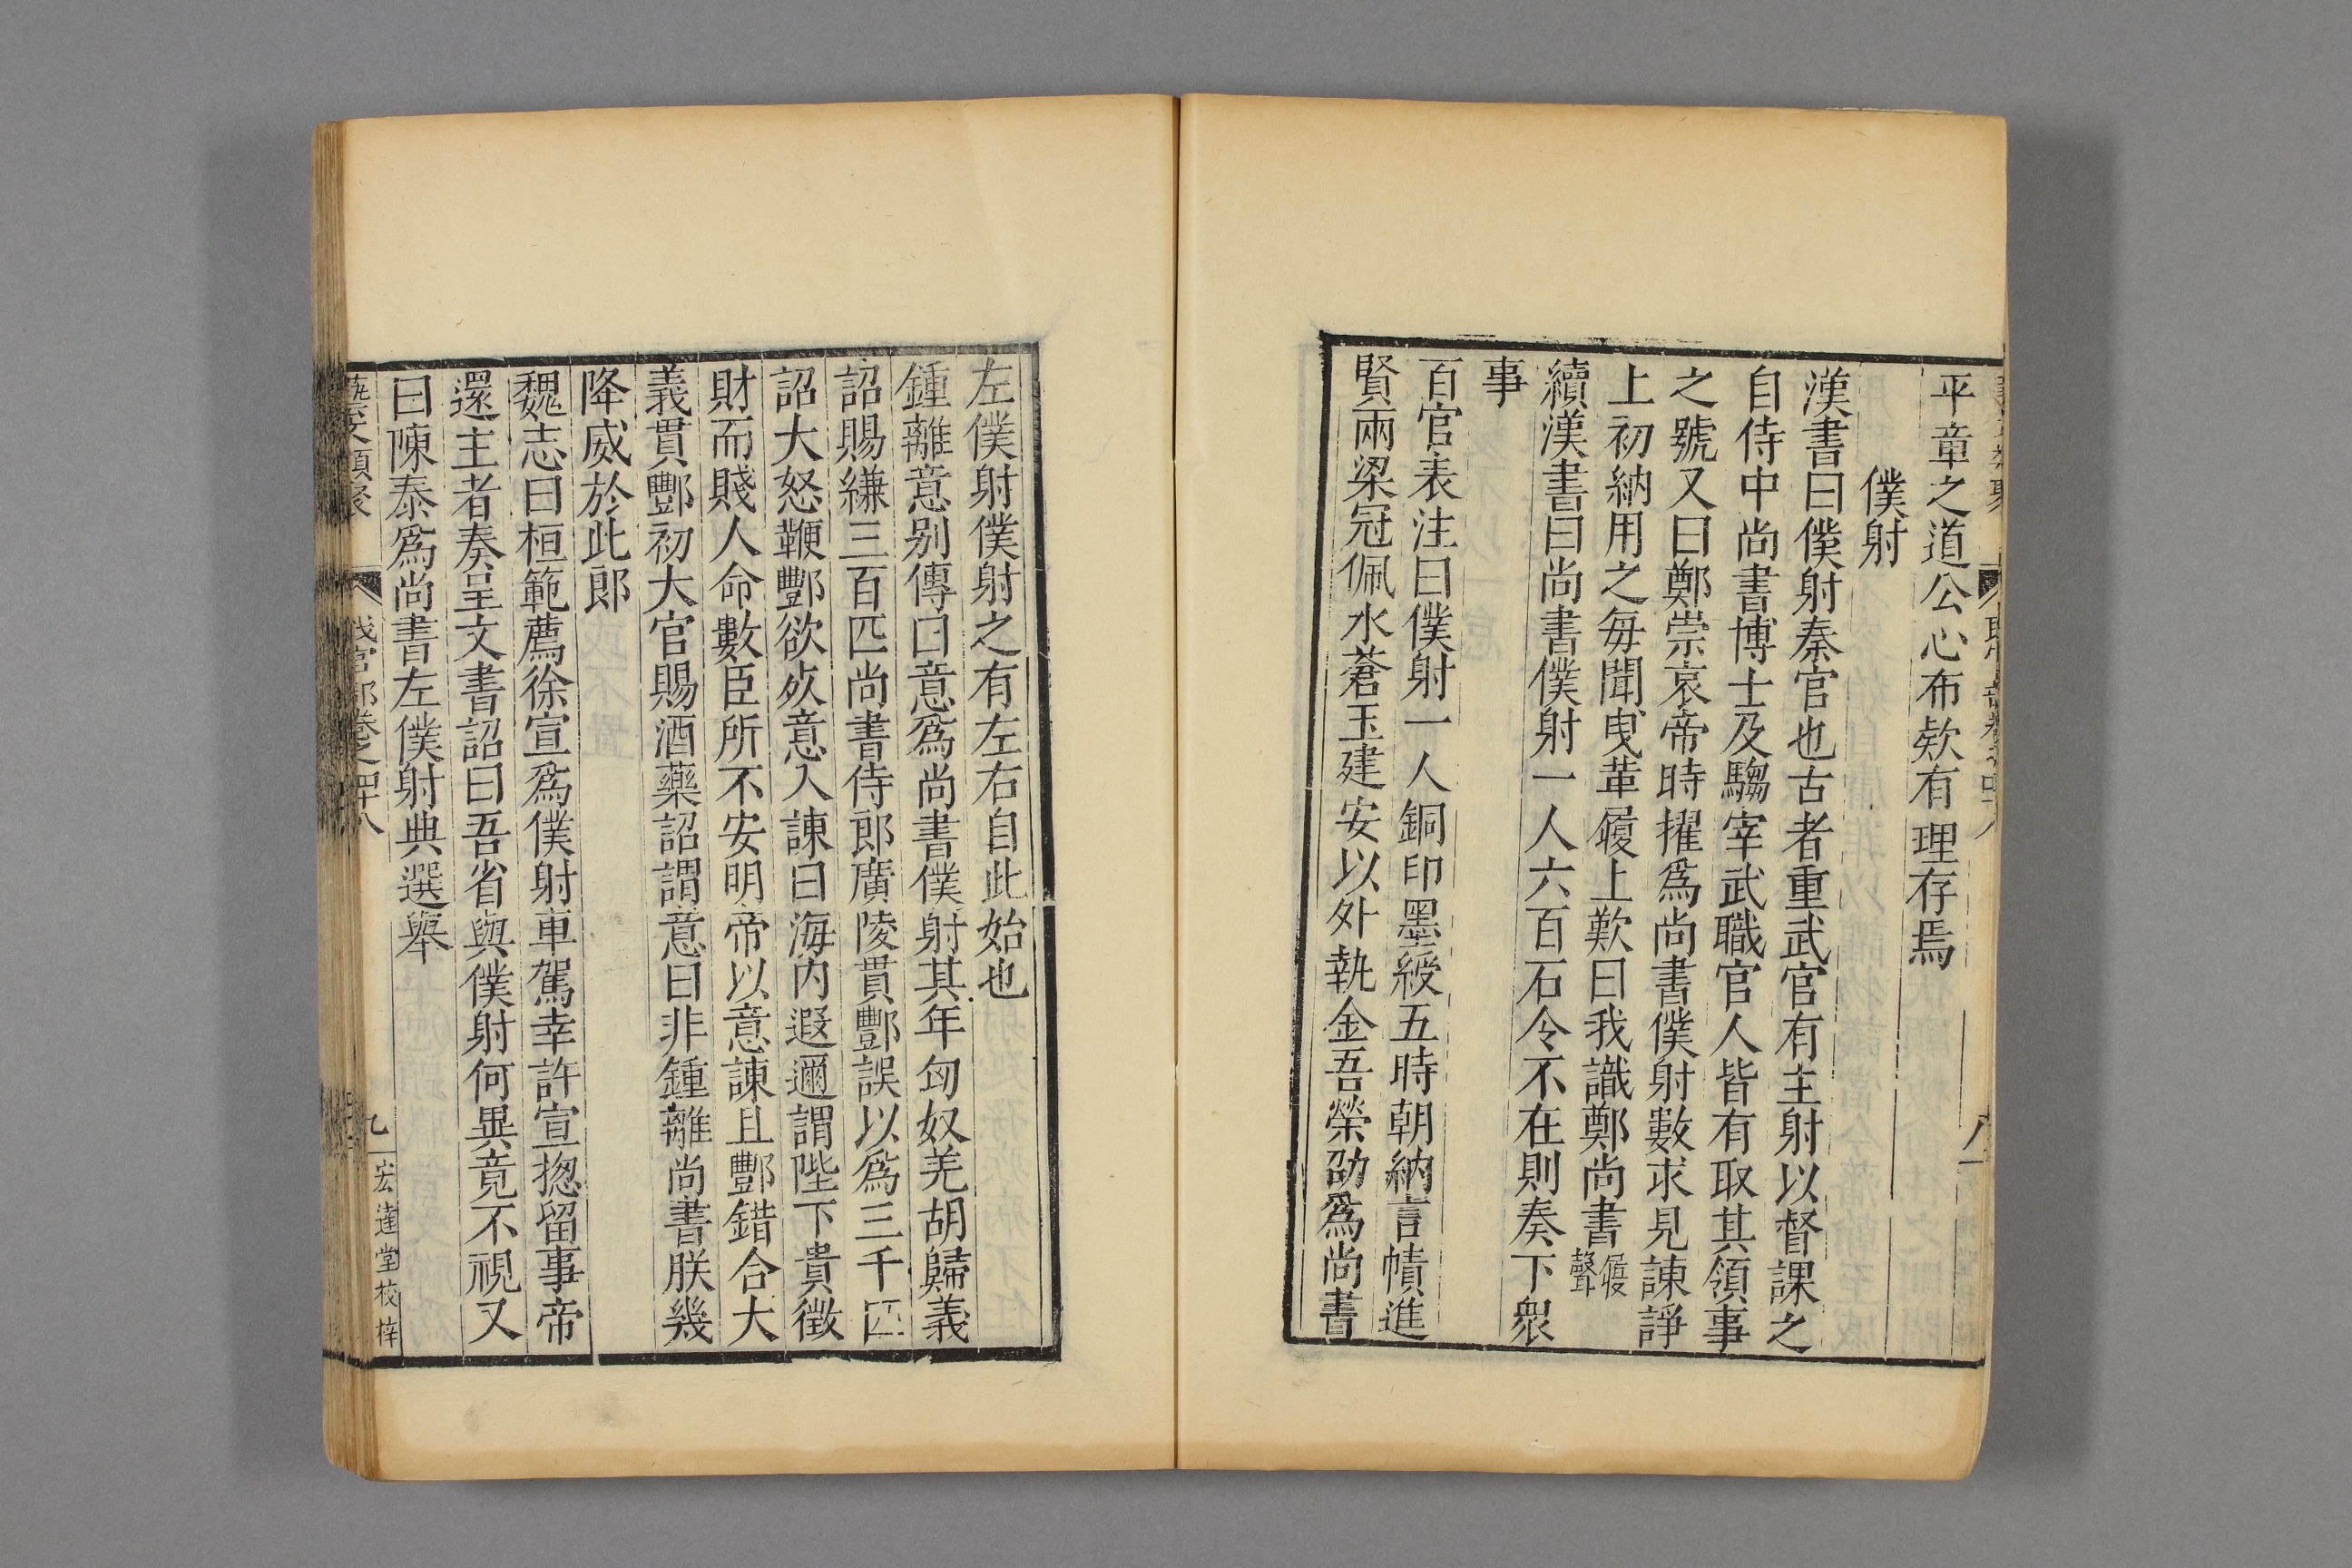 平章之道公心布欵有理存焉
僕射
漢書曰僕射秦官也古者重武官有主射以督課之
自侍中尚書博士及騶宰武職官人皆有取其領事
之號又曰鄭崇哀帝時擢爲尚書僕射數求見諫諍
上初納用之毎聞曳革履上歎曰我識鄭尚書履聲
續漢書曰尚書僕射一人六百石令不在則奏下衆
事
百官表注曰僕射一人銅印墨綬五時朝納言幘進
賢兩梁冠佩水蒼玉建安以外執金吾榮劭爲尚書
左僕射僕射之有左右自此始也
鍾離意别傳曰意爲尚書僕射其年匈奴羌胡歸義
詔賜縑三百匹尚書侍郎廣陵貫酆誤以爲三千匹
詔大怒鞭酆欲死意入諫曰海内遐邇謂陛下貴徵
財而賤人命數臣所不安明帝以意諫且酆錯合大
義貫酆初大官賜酒藥詔謂意曰非鍾離尚書朕幾
降威於此郎
魏志曰桓範薦徐宣爲僕射車駕幸許宣揔留事帝
還主者奏呈文書詔曰吾省與僕射何異竟不視又
曰陳泰爲尚書左僕射典選舉
藝文類聚 職官部卷之四十八 九 宏達堂校梓